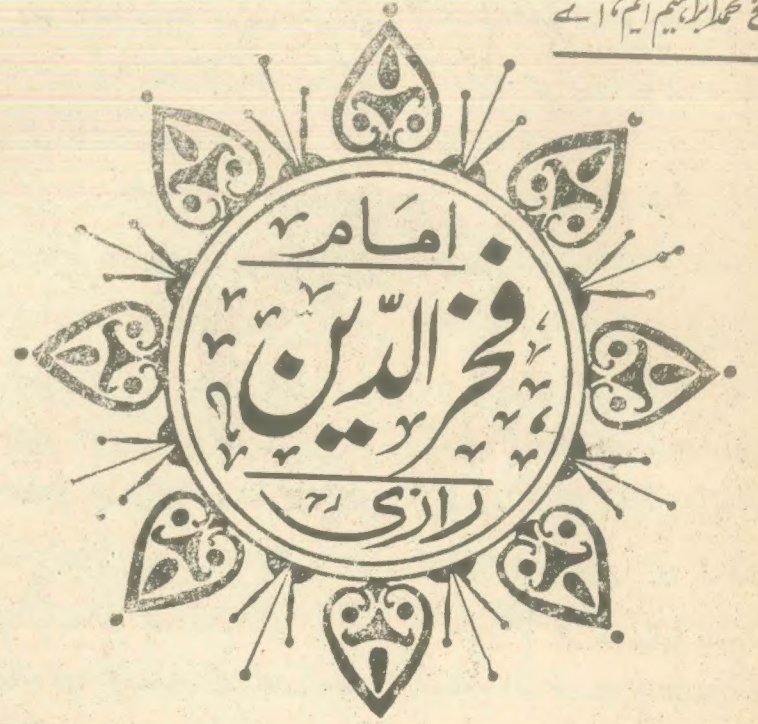 محمد ابراہیم ایم، اے
امام
فخر الدّین
رازیؒ